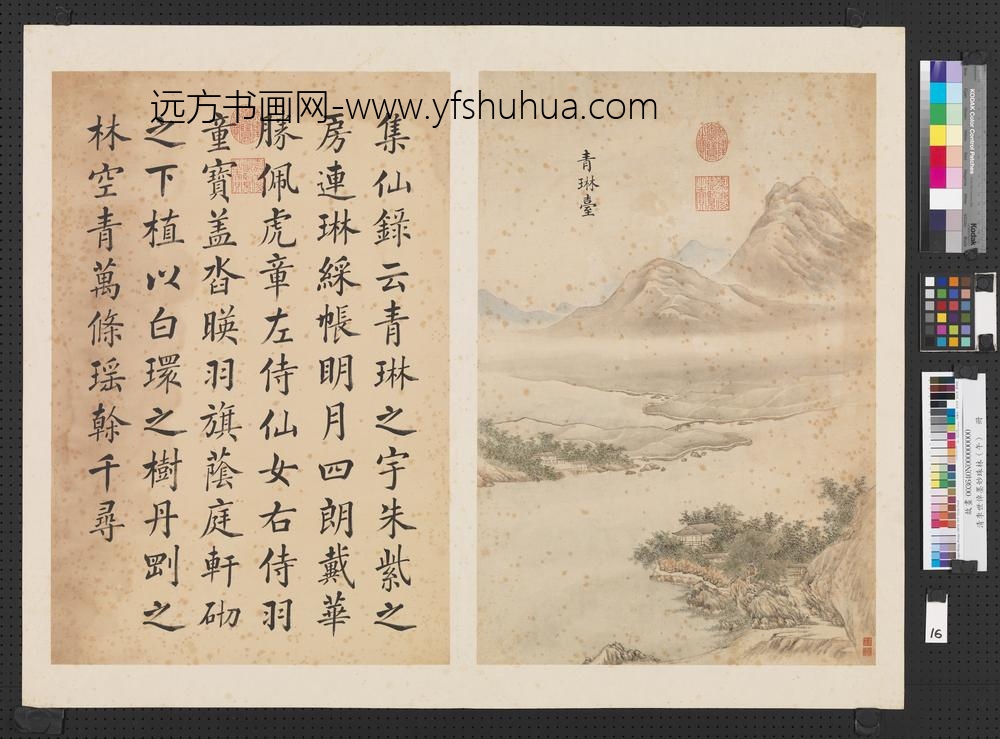 远方书画网-www.yfshuhua.com
青琳臺
集仙錄云青琳之宇朱紫之
房連琳綵帳明月四朗戴華
勝佩虎章左侍仙女右侍羽
童寶盖沓暎羽旗蔭庭軒砌
之下植以白環之樹丹剛之
林空青萬條瑶榦千尋
KODAK Color Control Patches
Kodak
故畫 003640N000000000
清李世倬墨妙珠林(午) 冊
16